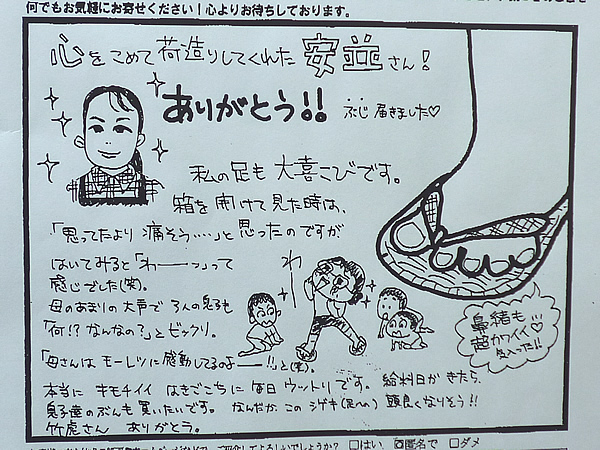 何でもお気軽にお寄せください！心よりお待ちしております。
心をこめて荷造りしてくれた 安並さん！
ありがとう!! ぶじ 届きました♡
私の足も 大喜こびです。
箱を 開けて 見た時は、
「思ってたより 痛そう‥‥」と思ったのですが
はいてみると「わーーっ」って
感じでした(笑)。
わー
母のあまりの大声で 3人の息子も
「何!? なんなの？」とビックリ。
鼻緒も
超カワイイ♡
気入った!!
「母さんは モーレツに感動してるのよー!!」と(笑)。
本当に キモチイイ はきごこちに 毎日 ウットリです。 給料日が きたら、
息子達のぶんも 買いたいです。 なんだか、この シゲキ(足への) 頭良くなりそう!!
竹虎さん ありがとう。
□はい ☑匿名で □ダメ